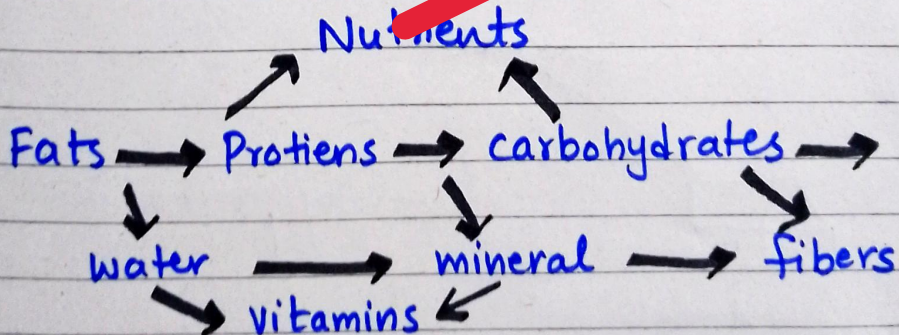 Nutrients
Fats → Protiens → carbohydrates →
water → mineral → fibers
vitamins